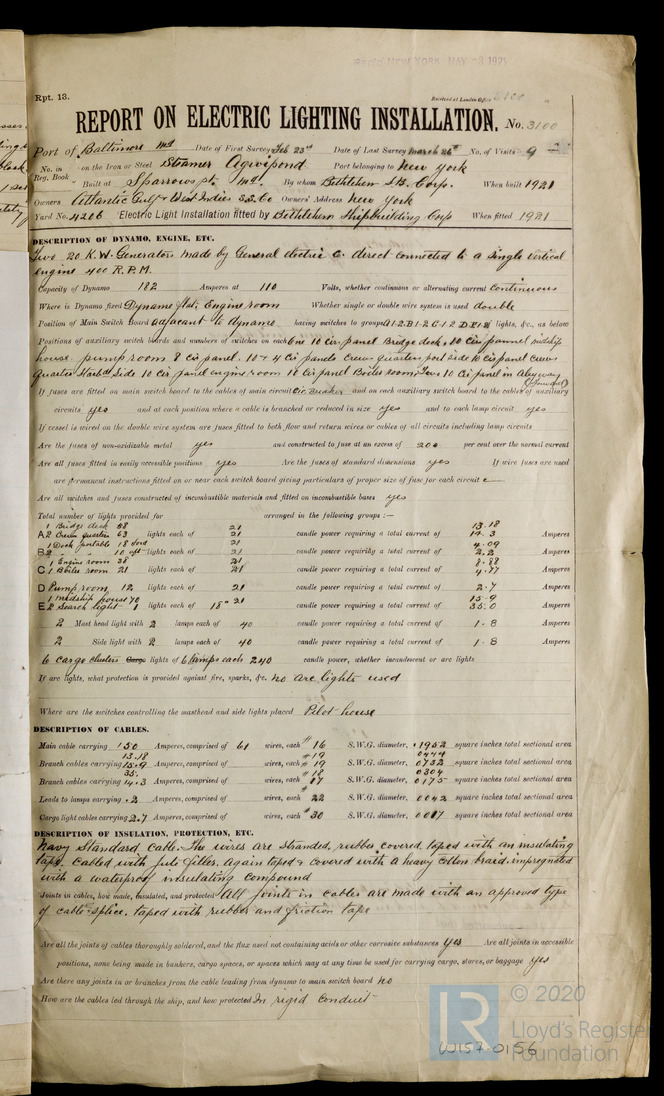 Rec'd NEW YORK MAY 1921
Rpt. 13.
Received at London Office
REPORT ON ELECTRIC LIGHTING INSTALLATION. No. 3100
Port of Baltimore Md Date of First Survey Feb 23rd Date of Last Survey March 26th No. of Visits 9
No. in Reg. Book on the Iron or Steel Steamer Agwipond Port belonging to New York
Built at Sparrows pt. Md. By whom Bethlehem S.B. Corp. When built 1921
Owners Atlantic Gulf & West Indies S.S. Co Owners' Address New York
Yard No. 4206 Electric Light Installation fitted by Bethlehem Shipbuilding Corp When fitted 1921
DESCRIPTION OF DYNAMO, ENGINE, ETC.
Two 20 K.W. Generators made by General electric Co. direct connected to a single vertical
engine 400 R.P.M.
Capacity of Dynamo 182 Amperes at 110 Volts, whether continuous or alternating current Continuous
Where is Dynamo fixed Dynamo flat, Engine room Whether single or double wire system is used double
Position of Main Switch Board adjacent to dynamo having switches to groups of lights, &c., as below
Positions of auxiliary switch boards and numbers of switches on each One 10 cir. panel Bridge deck, 10 Cir. pannel midship
house pump room 8 cir. panel. 10 & 4 Cir panels Crews quarters port side 10 cir panel crews
quarter Starb'd Side 10 cir panel engine room 10 Cir panel Boiler room, 10 Cir panel in Alleyway
(Forward)
If fuses are fitted on main switch board to the cables of main circuit and on each auxiliary switch board to the cables of auxiliary
circuits yes and at each position where a cable is branched or reduced in size yes and to each lamp circuit yes
If vessel is wired on the double wire system are fuses fitted to both flow and return wires or cables of all circuits including lamp circuits
Are the fuses of non-oxidizable metal yes and constructed to fuse at an excess of 200 per cent over the normal current
Are all fuses fitted in easily accessible positions yes Are the fuses of standard dimensions yes If wire fuses are used
are permanent instructions fitted on or near each switch board giving particulars of proper size of fuse for each circuit
Are all switches and fuses constructed of incombustible materials and fitted on incombustible bases yes
Total number of lights provided for arranged in the following groups :—
1 Bridge deck 58 21 13.18
A 2 Crews quarters 63 lights each of 21 candle power requiring a total current of 14.3 Amperes
1 Deck portable 18 ford 21 4.09
B 2 " " 10 aft lights each of 21 candle power requiring a total current of 2.2 Amperes
1 Engine room 38 21 8.88
C 1 Boiler room 21 lights each of 21 candle power requiring a total current of 4.77 Amperes
D Pump room 12 lights each of 21 candle power requiring a total current of 2.7 Amperes
1 Midship house 70 15.9
E 2 Search light 1 lights each of 18" 21 candle power requiring a total current of 35.0 Amperes
2 Mast head light with 2 lamps each of 40 candle power requiring a total current of 1.8 Amperes
2 Side light with 2 lamps each of 40 candle power requiring a total current of 1.8 Amperes
6 Cargo clusters Cargo lights of 6 lamps each 240 candle power, whether incandescent or arc lights
If arc lights, what protection is provided against fire, sparks, &c. No arc lights used
Where are the switches controlling the masthead and side lights placed Pilot house
DESCRIPTION OF CABLES.
Main cable carrying 150 Amperes, comprised of 61 wires, each #16 S.W.G. diameter, .1952 square inches total sectional area
13.18 #19 0444
Branch cables carrying 15.9 Amperes, comprised of wires, each #19 S.W.G. diameter, 0732 square inches total sectional area
35. #18 0304
Branch cables carrying 14.3 Amperes, comprised of wires, each #17 S.W.G. diameter, 0175 square inches total sectional area
Leads to lamps carrying .2 Amperes, comprised of wires, each #22 S.W.G. diameter, 0042 square inches total sectional area
Cargo light cables carrying 2.7 Amperes, comprised of wires, each #30 S.W.G. diameter, 0017 square inches total sectional area
DESCRIPTION OF INSULATION, PROTECTION, ETC.
Navy Standard Cable. The wires are stranded, rubber covered, taped with an insulating
tape. Cabled with jute filler. Again taped & covered with a heavy cotton braid impregnated
with a waterproof insulating compound
Joints in cables, how made, insulated, and protected All joints in cables are made with an approved type
of cable splice. taped with rubber and friction tape
Are all the joints of cables thoroughly soldered, and the flux used not containing acids or other corrosive substances yes Are all joints in accessible
positions, none being made in bunkers, cargo spaces, or spaces which may at any time be used for carrying cargo, stores, or baggage yes
Are there any joints in or branches from the cable leading from dynamo to main switch board no
How are the cables led through the ship, and how protected In rigid conduit
© 2020
LR
Lloyd's Register
Foundation
W157-0156